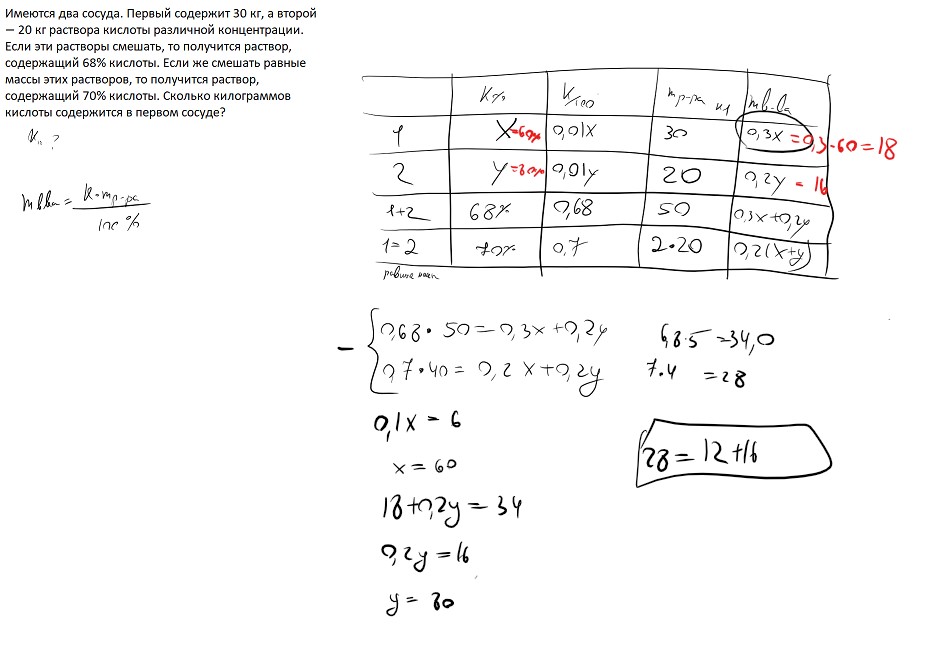 Имеются два сосуда. Первый содержит 30 кг, а второй
— 20 кг раствора кислоты различной концентрации.
Если эти растворы смешать, то получится раствор,
содержащий 68% кислоты. Если же смешать равные
массы этих растворов, то получится раствор,
содержащий 70% кислоты. Сколько килограммов
кислоты содержится в первом сосуде?
?
mв-ва = K·mр-ра / 100%
K% K/100 mр-ра mв-ва
1 X=60% 0,01x 30 0,3x = 0,3·60=18
2 y=80% 0,01y 20 0,2y = 16
1+2 68% 0,68 50 0,3x+0,2y
1=2 70% 0,7 2·20 0,2(x+y)
равные
0,68·50=0,3x+0,2y
–
0,7·40=0,2x+0,2y
6,8·5=34,0
7·4=28
0,1x=6
x=60
28=12+16
18+0,2y=34
0,2y=16
y=80